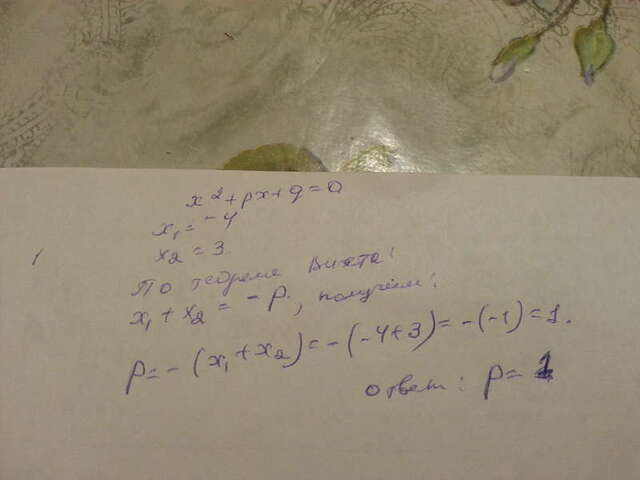 x²+px+q=0
x₁=-4
x₂=3.
По теореме Виета:
x₁+x₂=-p, получаем:
p=-(x₁+x₂)=-(-4+3)=-(-1)=1.
ответ: p=1